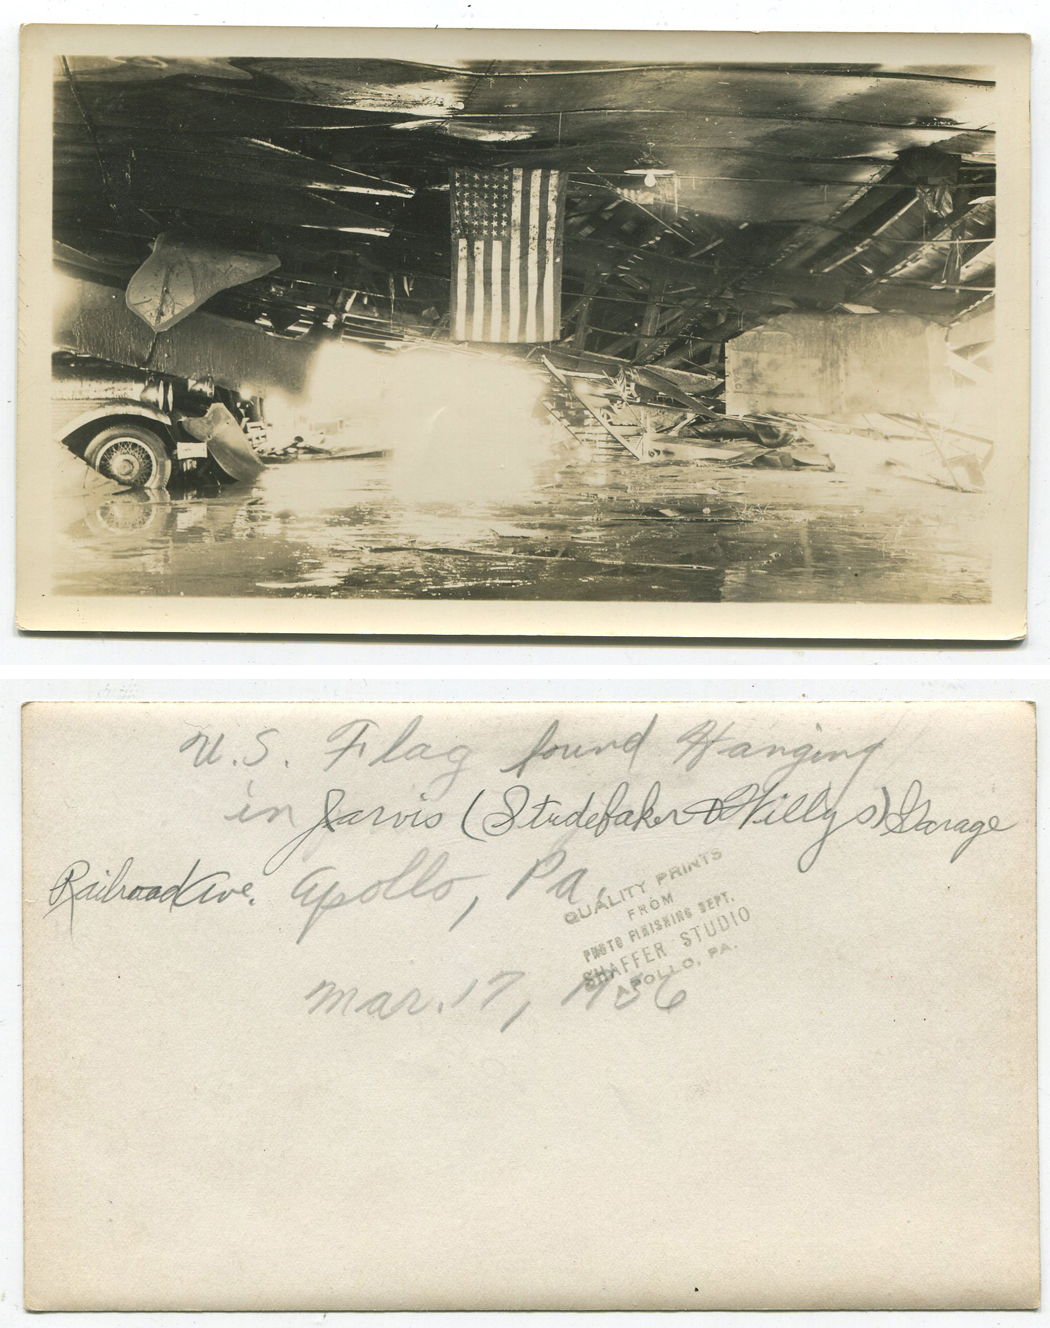 U.S. Flag found Hanging
in Jarvis (Studebaker & Willys) Garage
Railroad Ave. Apollo, Pa.
QUALITY PRINTS
FROM
PHOTO FINISHING DEPT.
SHAFFER STUDIO
APOLLO, PA.
Mar. 17, 1936